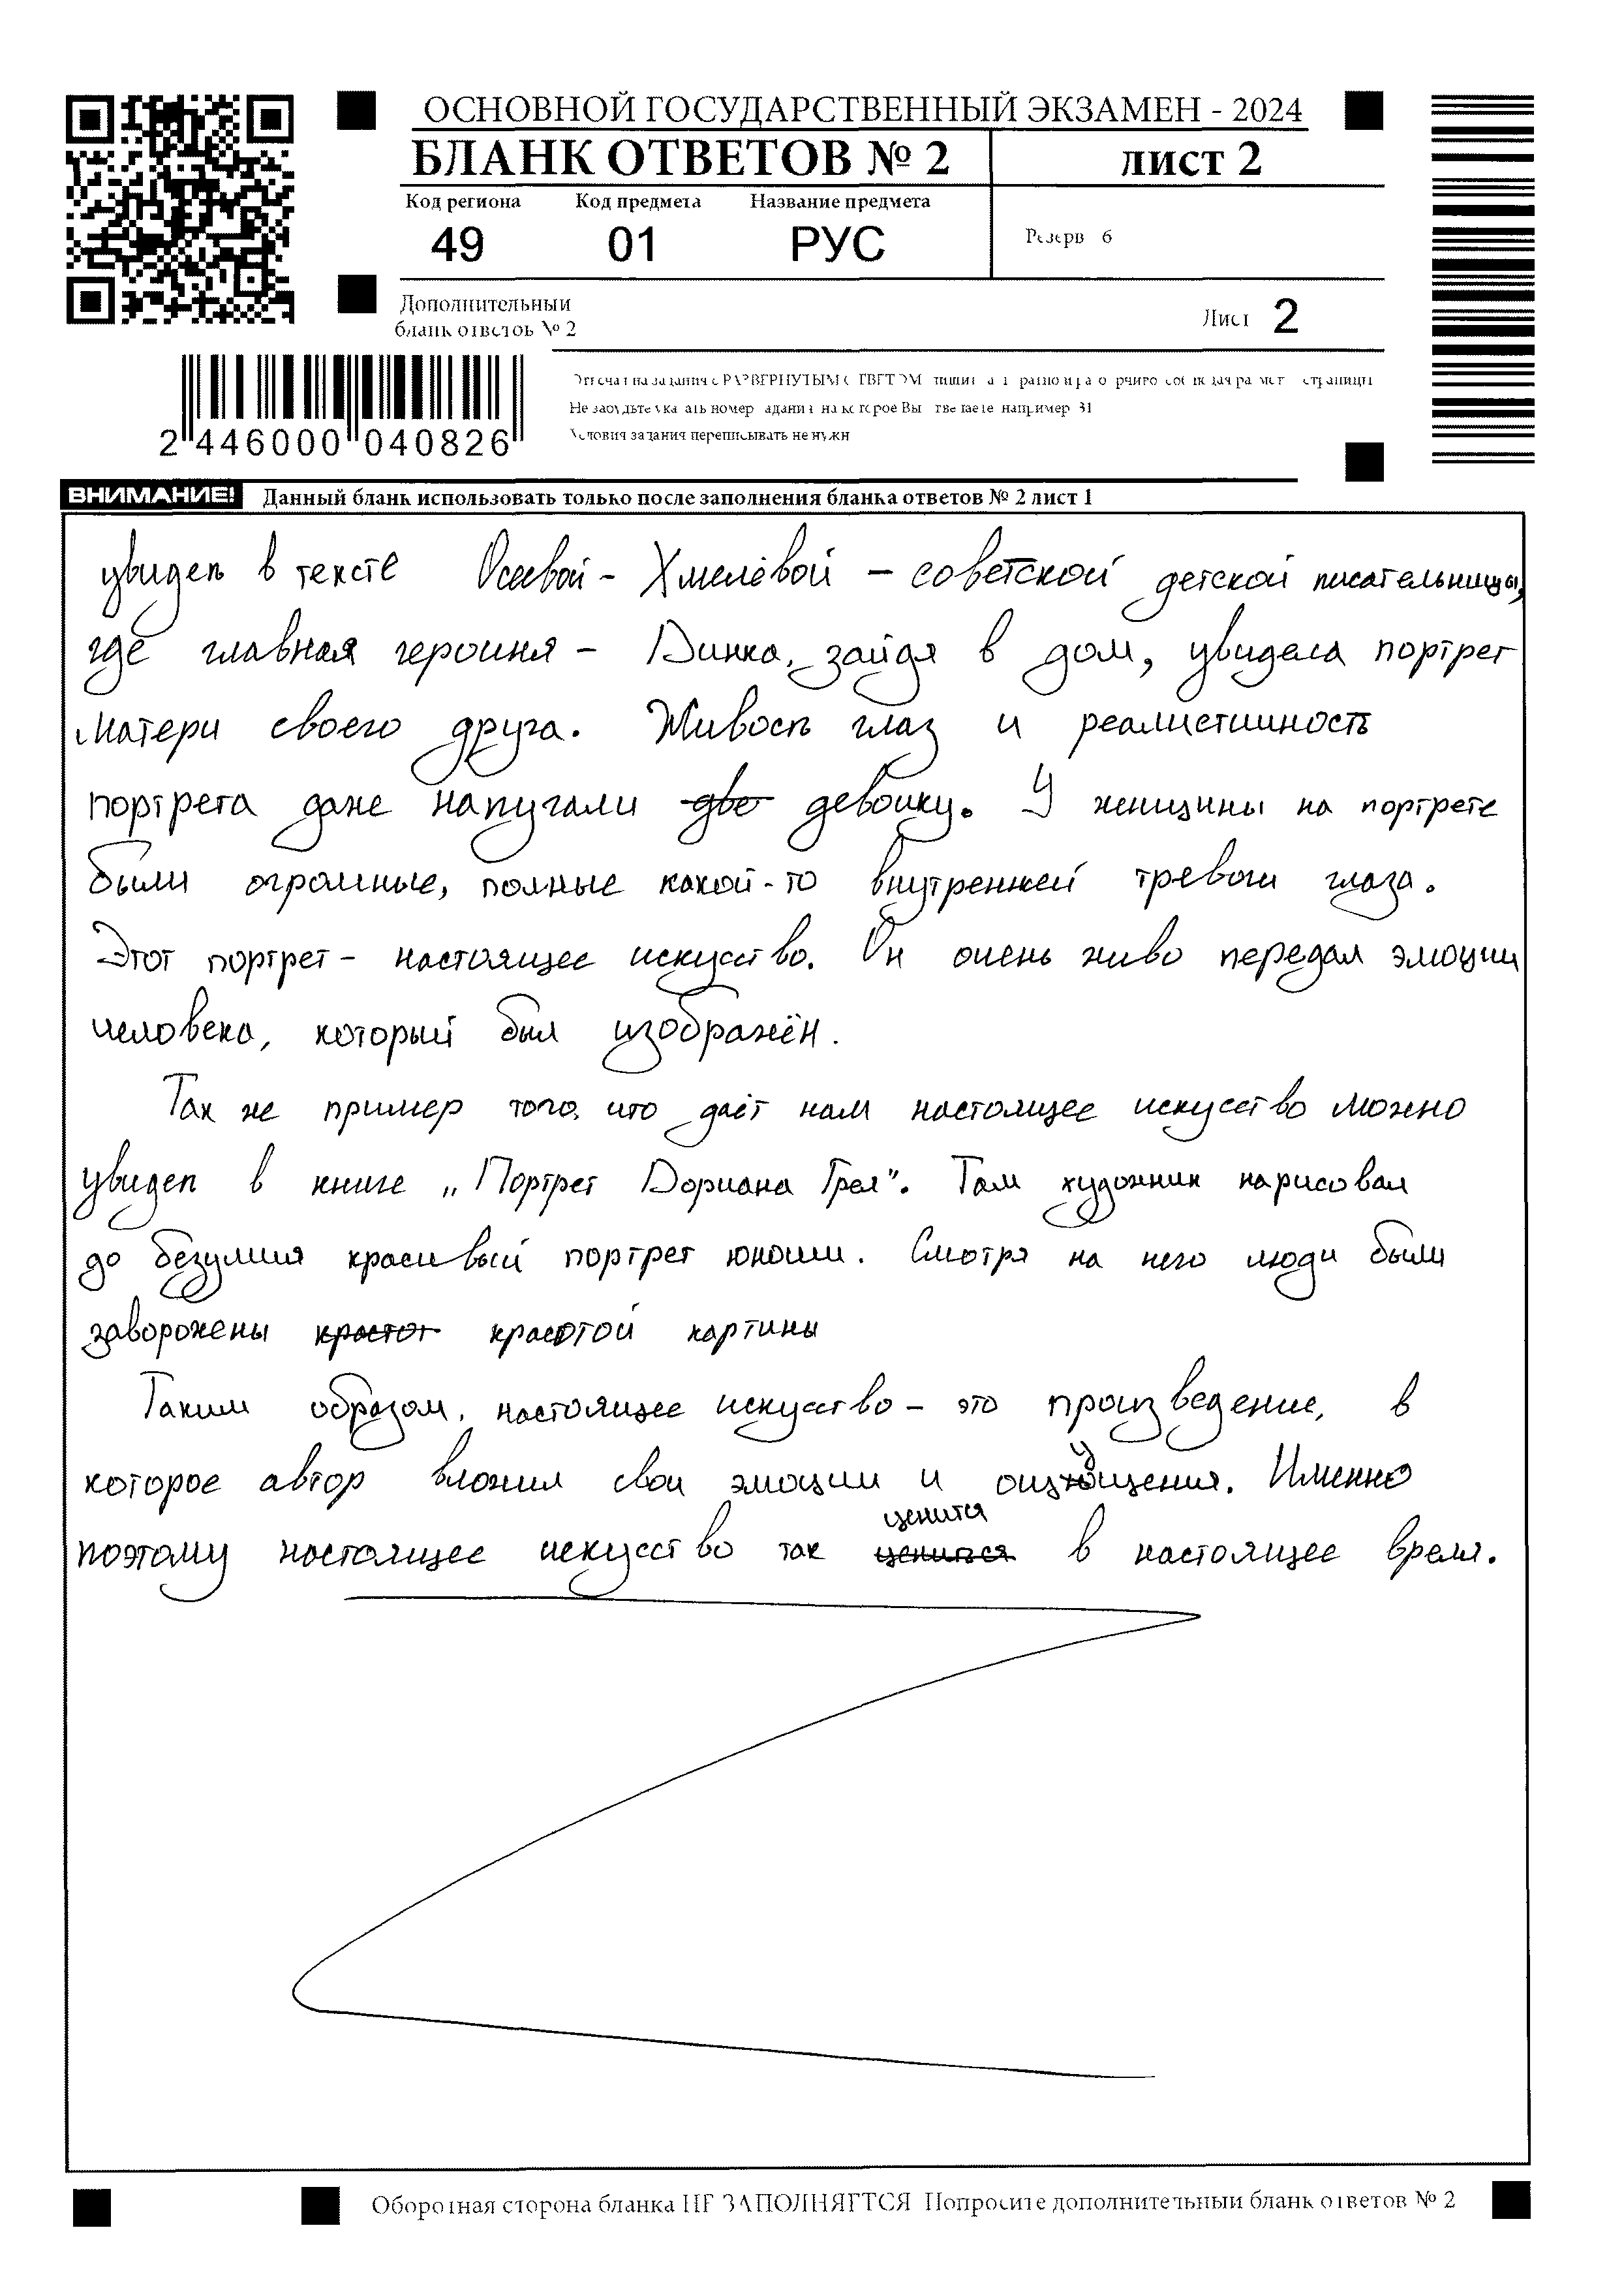 ОСНОВНОЙ ГОСУДАРСТВЕННЫЙ ЭКЗАМЕН - 2024
БЛАНК ОТВЕТОВ № 2 лист 2
Код региона Код предмета Название предмета
49 01 РУС Резерв 6
Дополнительный
бланк ответов № 2
Лист 2
2 446000 040826
Не забудьте указать номер задания на которое Вы отвечаете например 31
Условия задания переписывать не нужн
ВНИМАНИЕ! Данный бланк использовать только после заполнения бланка ответов № 2 лист 1
увидеть в тексте Осеевой - Хмелёвой - советской детской писательницы,
где главная героиня - Динка, зайдя в дом, увидела портрет
матери своего друга. Живость глаз и реалистичность
портрета даже напугали две девочку. У женщины на портрете
были огромные, полные какой-то внутренней тревоги глаза.
Этот портрет - настоящее искусство. Он очень живо передал эмоции
человека, который был изображён.
Так же пример того, что даёт нам настоящее искусство можно
увидеть в книге „Портрет Дориана Грея". Там художник нарисовал
до безумия красивый портрет юноши. Смотря на него люди были
заворожены красотой картины
Таким образом, настоящее искусство - это произведение, в
которое автор вложил свои эмоции и ощущения. Именно
поэтому настоящее искусство так ценится в настоящее время.
Оборотная сторона бланка НЕ ЗАПОЛНЯЕТСЯ Попросите дополнительный бланк ответов № 2